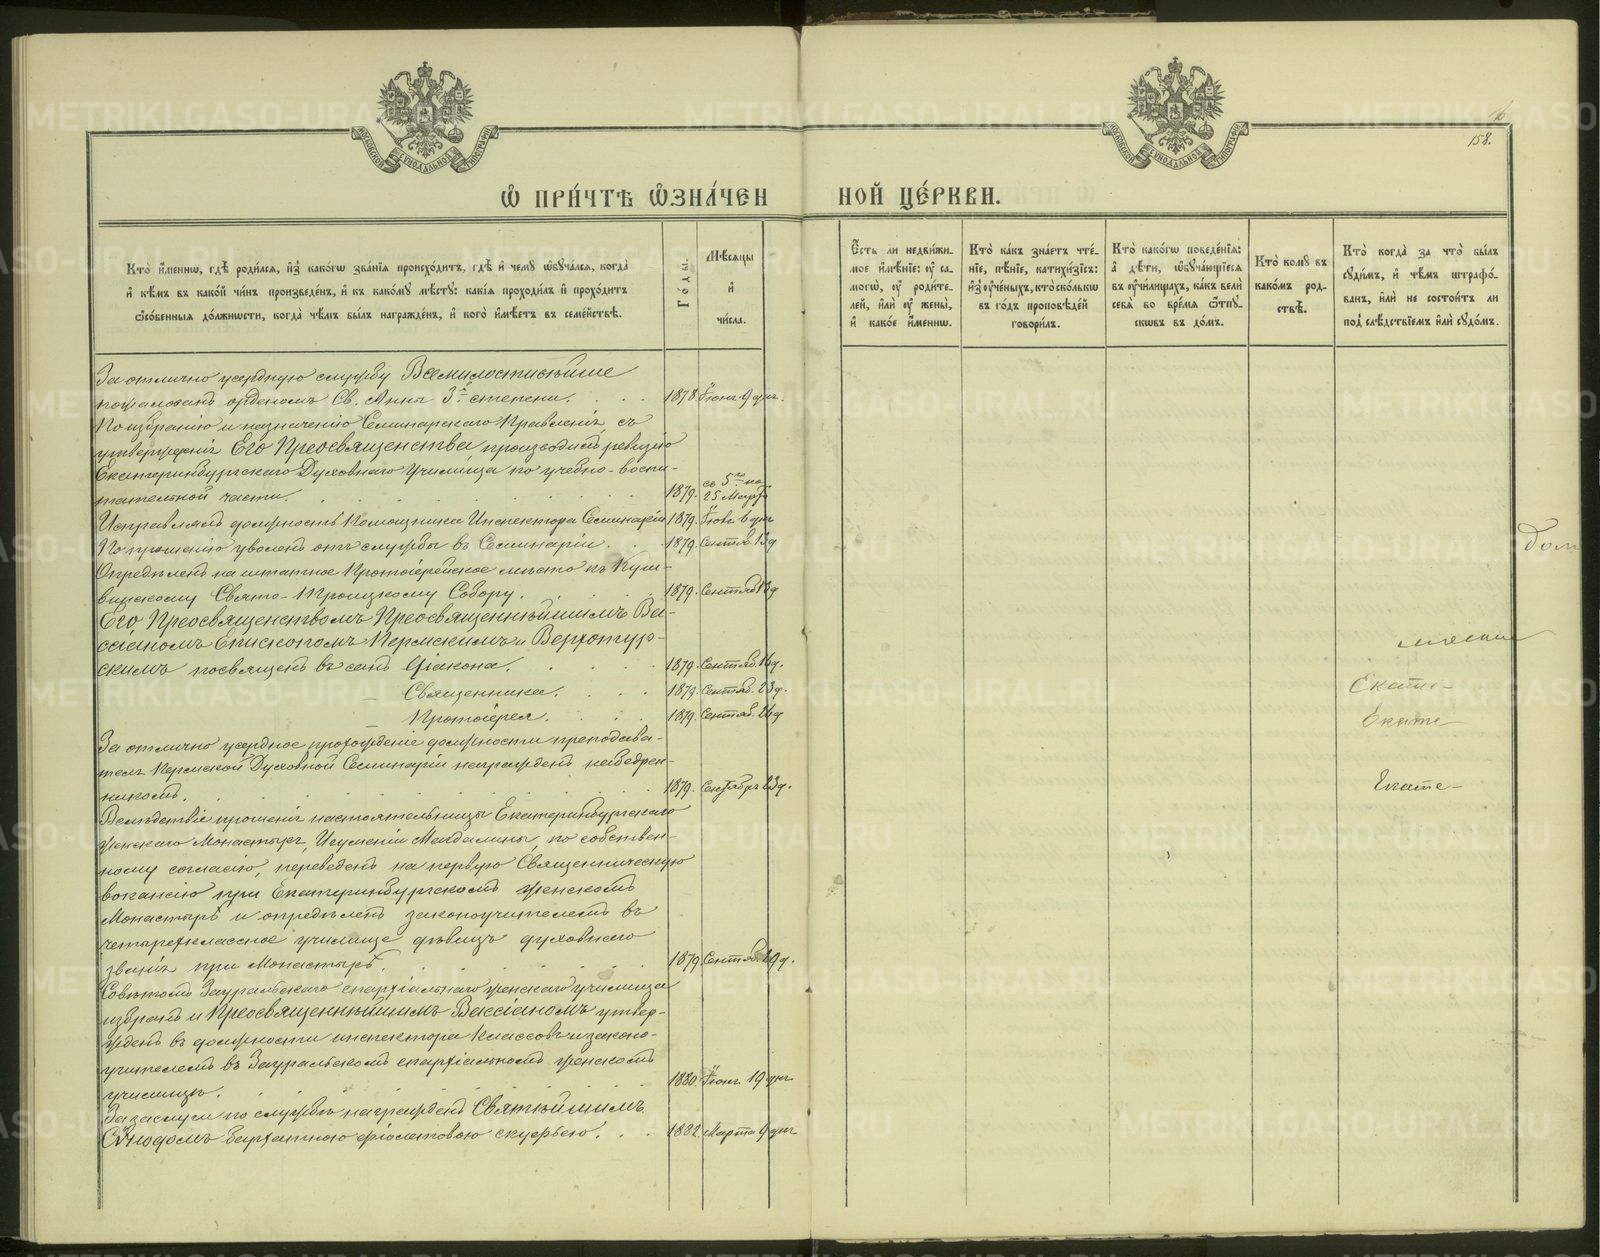 МОСКОВСКОЙ СУНОДАЛЬНОЙ ТИПОГРАФІИ
МОСКОВСКОЙ СУНОДАЛЬНОЙ ТИПОГРАФІИ
158.
Ѽ ПРИ́ЧТѢ Ѽ҆ЗНА́ЧЕН
НОЙ ЦЕ́РКВИ.
Кто̀ и҆́меннѡ, гдѣ̀ роди́лся, и҆з̾ како́гѡ зва́нїя происхо́дитъ, гдѣ̀ и҆ чемꙋ̀ ѡ҆бꙋча́лся, когда̀
и҆ кѣ́мъ въ како́й чи́нъ произведе́нъ, и҆ къ како́мꙋ мѣ́стꙋ: какі́я проходи́лъ и҆ прохо́дитъ
ѻ҆со́бенныя до́лжнѡсти, когда̀ чѣ́мъ бы́лъ награжде́нъ, и҆ кого̀ и҆мѣ́етъ въ семе́йствѣ.
Го́ды.
Мѣ́сяцы
и҆
чи́сла.
Є҆́сть ли недви́жи-
мое и҆мѣ́нїе: ᲂу҆ са-
могѡ̀, ᲂу҆ роди́те-
лей, и҆лѝ ᲂу҆ жены̀,
и҆ како́е и҆́меннѡ.
Кто̀ ка́къ зна́етъ чте́-
нїе, пѣ́нїе, катихи́зїсъ:
и҆з̾ ᲂу҆че́ныхъ, кто̀ ско́лькѡ
въ го́дъ проповѣ́дей
говори́лъ.
Кто̀ како́гѡ поведе́нїя:
а҆ дѣ́ти, ѡ҆бꙋча́ющїеся
въ ᲂу҆чи́лищахъ, ка́къ велѝ
себѐ во вре́мя ѿпꙋ-
скѡвъ въ до́мъ.
Кто̀ комꙋ̀ въ
како́мъ род-
ствѣ̀.
Кто̀ когда̀ за что̀ бы́лъ
сꙋди́мъ, и҆ чѣ́мъ штрафо́-
ванъ, и҆лѝ не состои́тъ ли
под̾ слѣ́дствїемъ и҆лѝ сꙋдо́мъ.
За отлично усердную службу Всемилостивѣйше
пожалованъ орденомъ Св. Анны 3й степени. 1878. Іюня 9 дня.
По избранію и назначенію Семинарскаго Правленія, съ
утвержденія Его Преосвященства производилъ ревизію
Екатеринбургскаго Духовнаго Училища по учебно-воспи-
тательной части. 1879. съ 5го по 25 Марта
Исправлялъ должность Помощника Инспектора Семинаріи 1879. 6 дня
По прошенію уволенъ отъ службы въ Семинаріи. 1879. Сентяб. 13 д
Опредѣленъ на штатное Протоіерейское мѣсто къ Куш-
винскому Свято-Троицкому Собору. 1879. Сентяб 13 д
Его Преосвященствомъ Преосвященнѣйшимъ Ва-
ссіаномъ Епископомъ Пермскимъ и Верхотур-
скимъ посвященъ въ санъ Діакона. 1879. Сентяб. 16 д.
— Священника. 1879. Сентяб. 23 д.
— Протоіерея. 1879. Сентяб. 26 д
За отлично усердное прохожденіе должности преподава-
теля Пермской Духовной Семинаріи награжденъ набедрен-
никомъ. 1879. Сентября 23 д.
Вслѣдствіе прошенія настоятельницы Екатеринбургскаго
женскаго Монастыря, Игуменіи Магдалины, по собствен-
ному согласію, переведенъ на первую Священническую
вакансію при Екатеринбургскомъ женскомъ
Монастырѣ и опредѣленъ законоучителемъ въ
четырехклассное училище дѣвицъ духовнаго
званія при Монастырѣ. 1879. Сентяб. 29 д.
Совѣтомъ Зауральскаго епархіальнаго женскаго училища
избранъ и Преосвященнѣйшимъ Вассіаномъ утвер-
жденъ въ должности инспектора классовъ и законо-
учителемъ въ Зауральскомъ епархіальномъ женскомъ
училищѣ. 1880. Іюня 19 дня
За заслуги по службѣ награжденъ Святѣйшимъ
Сѵнодомъ бархатною фіолетовою скуфьею. 1882. Марта 9 дня
Екате-
Екате
Екате-